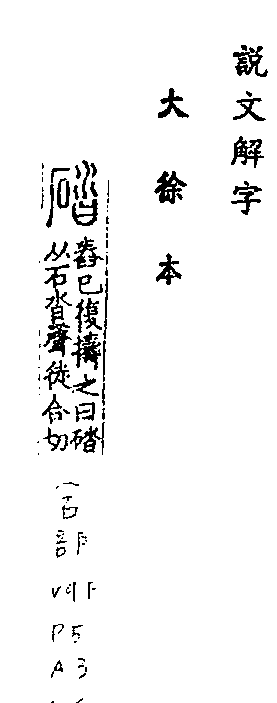 説文解字
大徐本
䃚
舂已復擣之曰䃚
从石沓聲徒合切
石
部
V9下
P5
A3